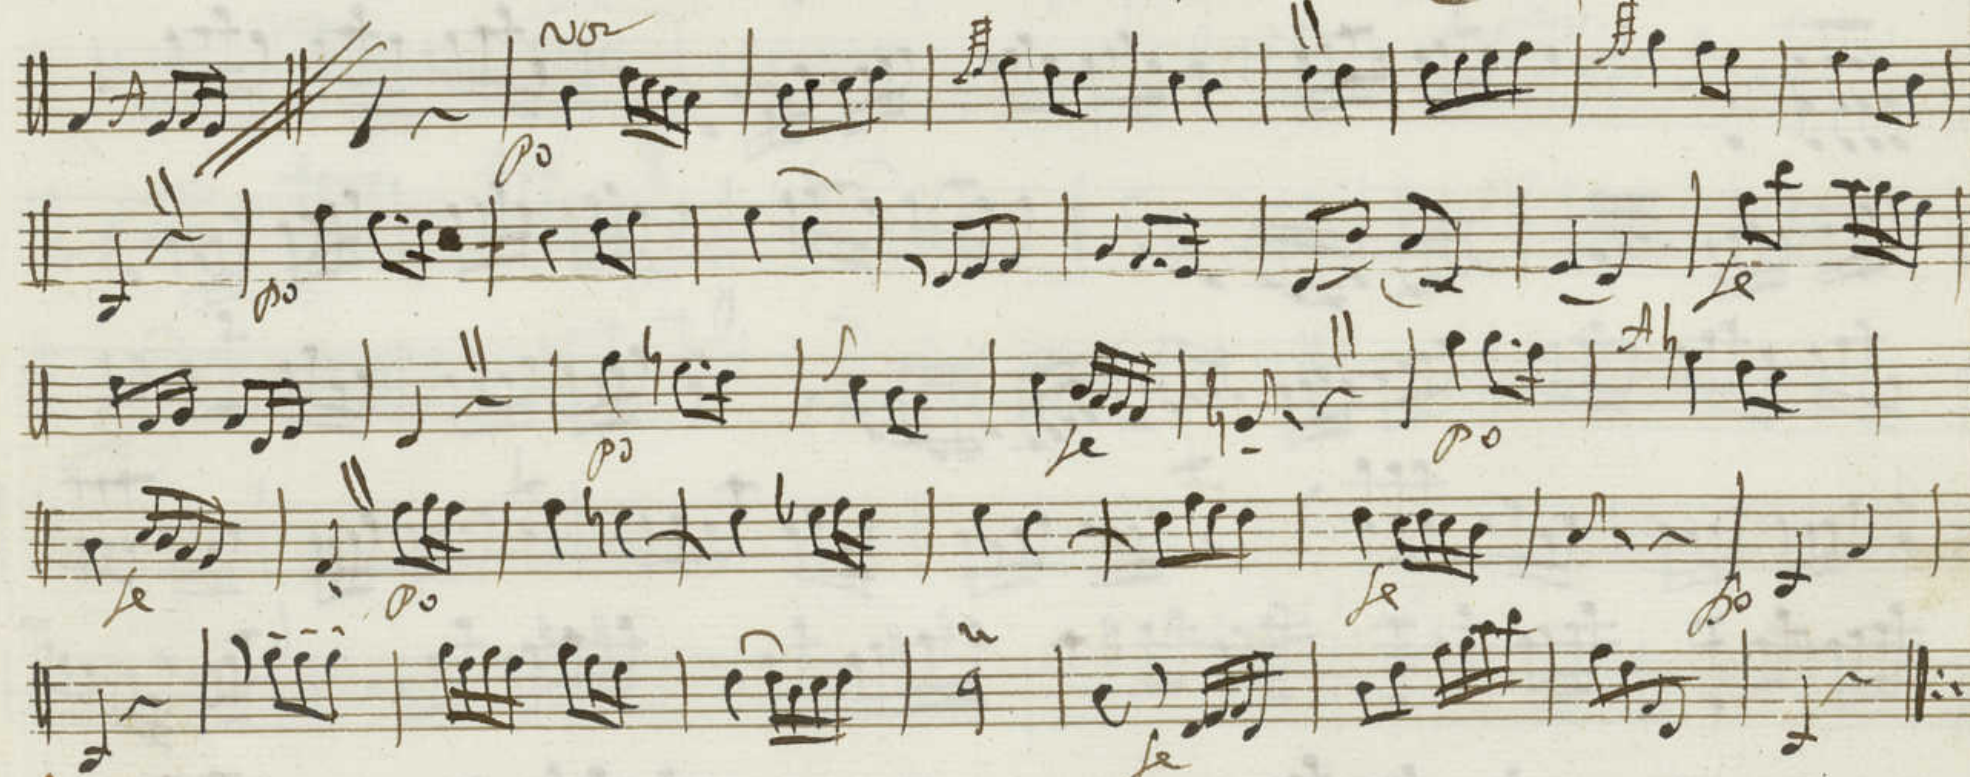 po
po fe
po fe po
fe po fe po
fe